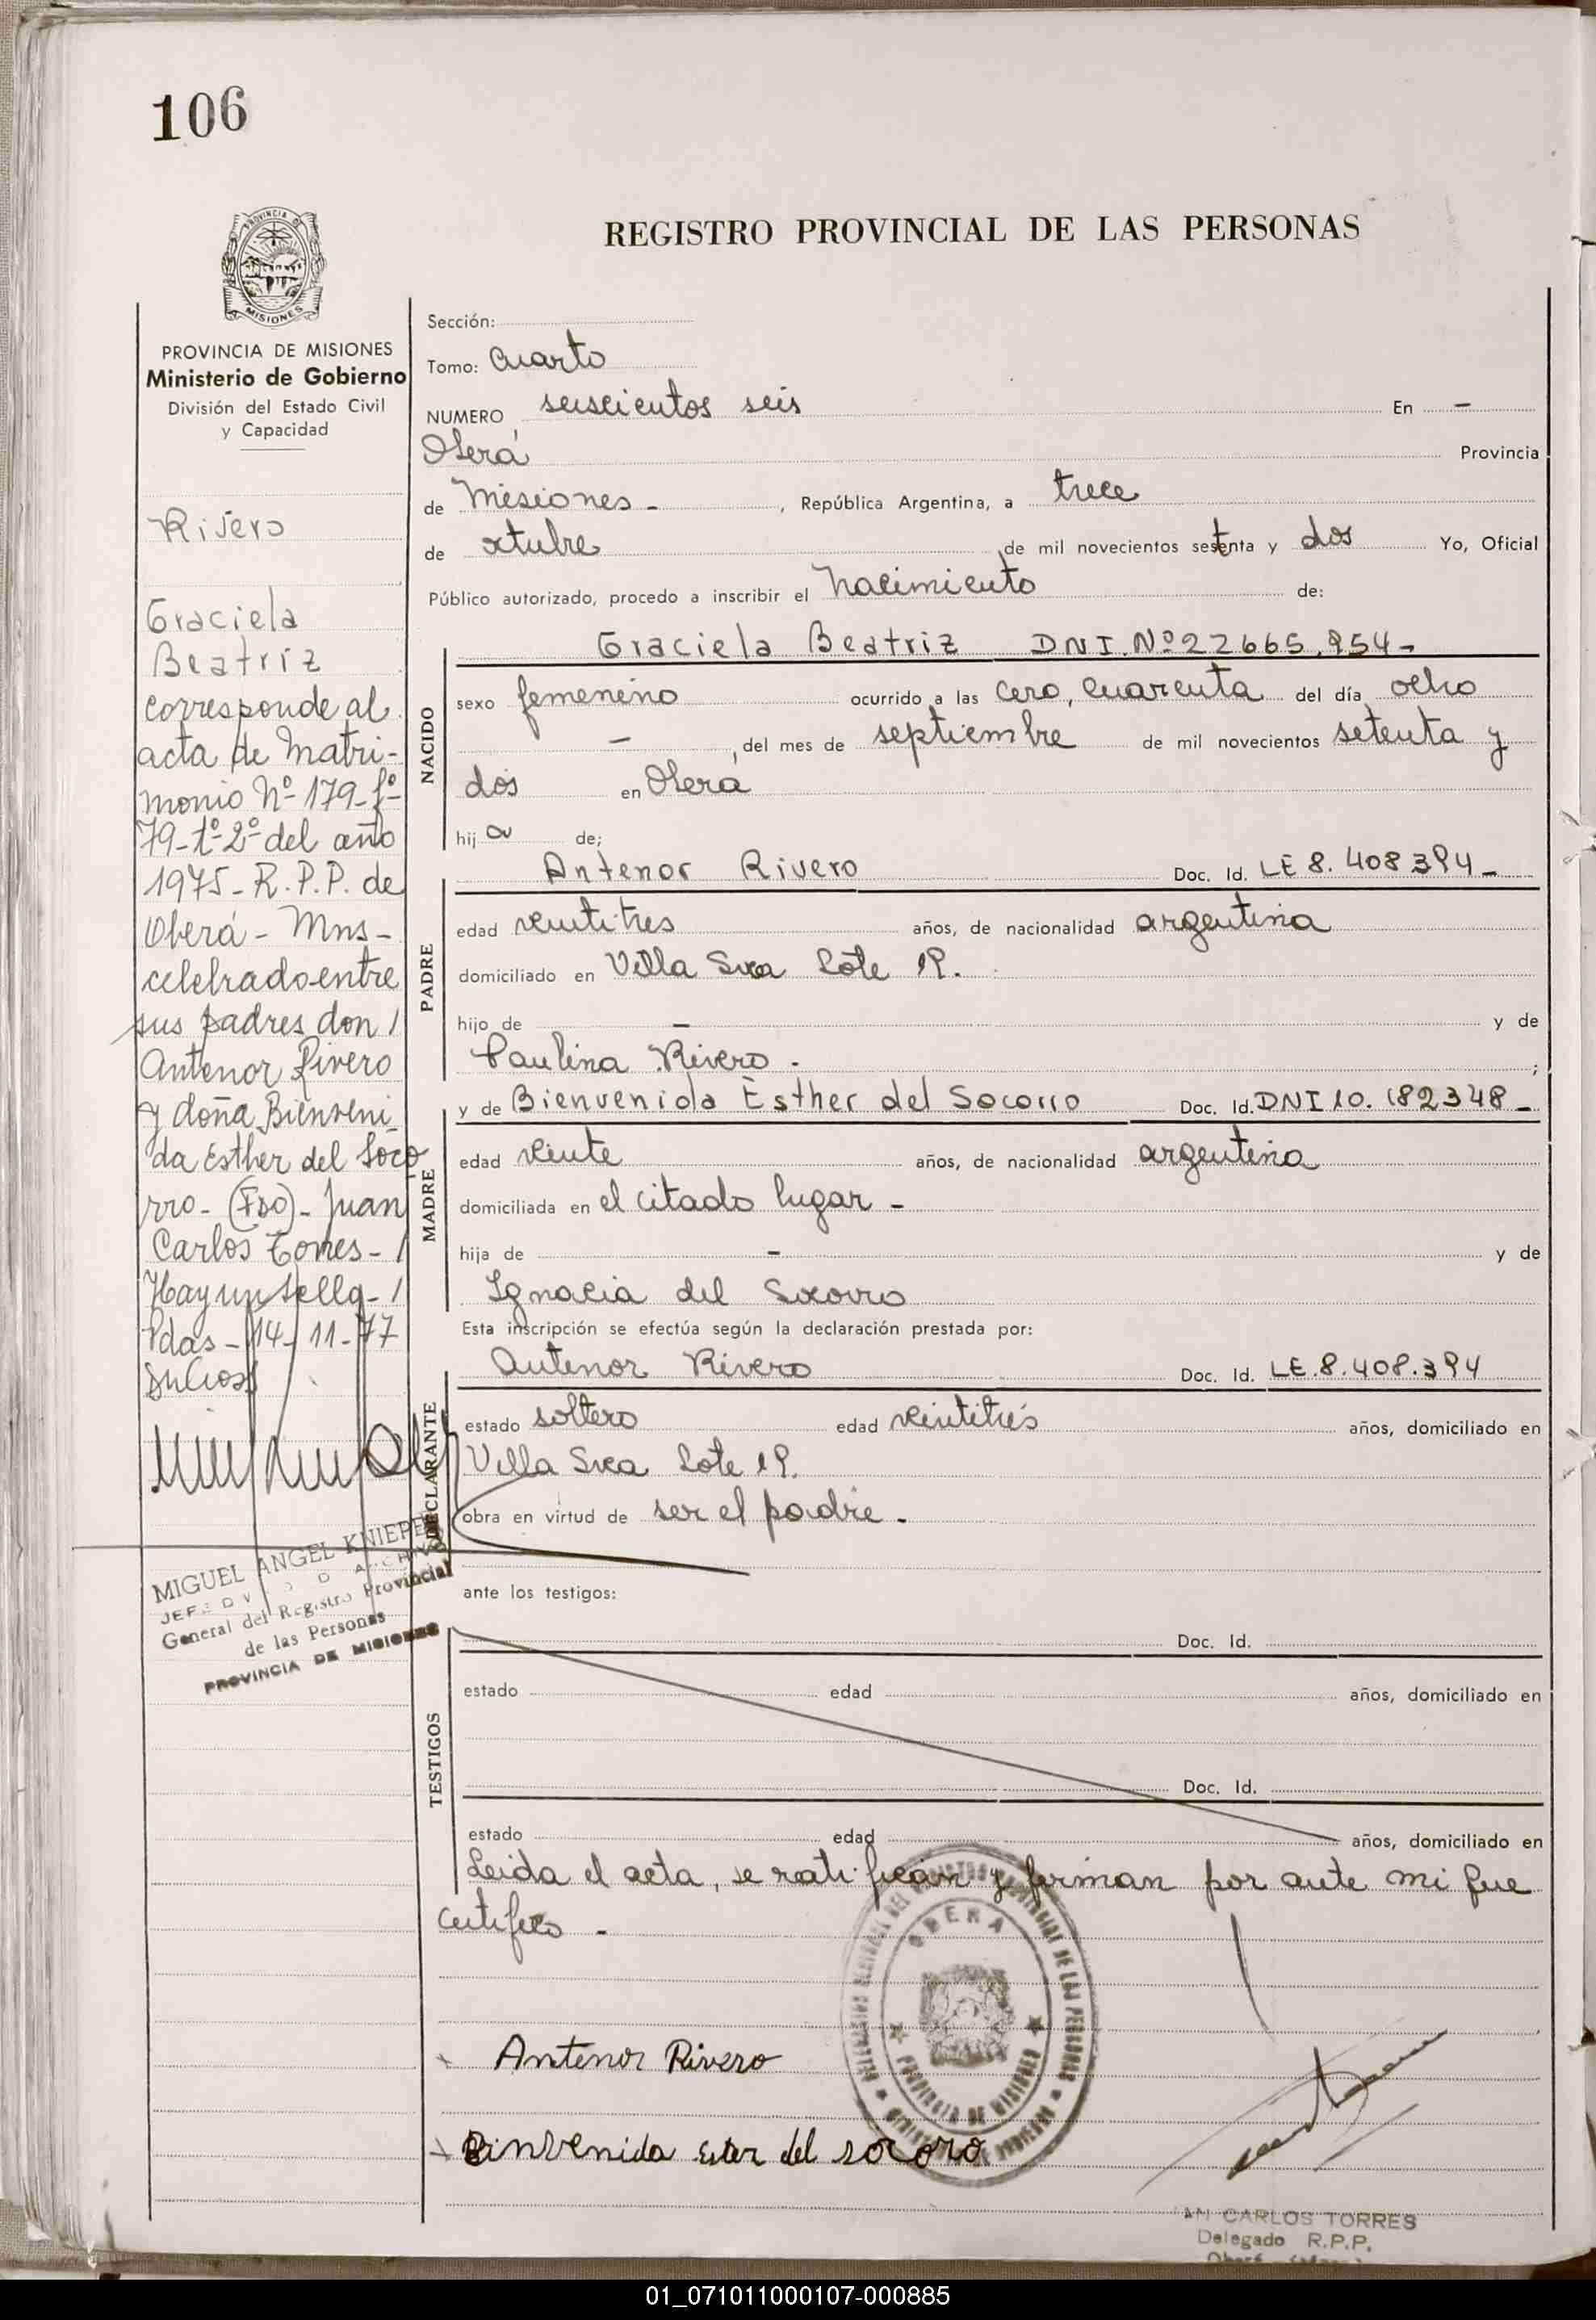 106
REGISTRO PROVINCIAL DE LAS PERSONAS
PROVINCIA DE
MISIONES
PROVINCIA DE MISIONES
Ministerio de Gobierno
División del Estado Civil
y Capacidad
Rivero
Graciela
Beatriz
corresponde al
acta de Matri-
monio Nº 179-fº
79-tº-2º del año
1975-R.P.P. de
Oberá-Mns-
celebrado entre
sus padres don/
Antenor Rivero
y doña Bienveni
da Esther del Soco
rro-(Fdo)-Juan
Carlos Torres-/
Hay un sello-/
Pdas-14-11-77
MIGUEL ANGEL
General del Registro Provincial
de las Personas
PROVINCIA DE MISIONES
Sección:
Tomo: Cuarto
NUMERO seiscientos seis En -
Oberá Provincia
de Misiones - , República Argentina, a trece
de octubre de mil novecientos setenta y dos Yo, Oficial
Público autorizado, procedo a inscribir el Nacimiento de:
Graciela Beatriz DNI.Nº22665.954-
NACIDO
sexo femenino ocurrido a las cero, cuarenta del día ocho
- , del mes de septiembre de mil novecientos setenta y
dos en Oberá
hij a de;
Antenor Rivero Doc. Id. LE 8.408394-
PADRE
edad veintitres años, de nacionalidad argentina
domiciliado en Villa Svea Lote 19.
hijo de - y de
Paulina Rivero - ;
y de Bienvenida Esther del Socorro Doc. Id. DNI 10.182348-
MADRE
edad veinte años, de nacionalidad argentina
domiciliada en el citado lugar -
hija de - y de
Ignacia del Socorro
Esta inscripción se efectúa según la declaración prestada por:
Antenor Rivero Doc. Id. LE.8.408.394
DECLARANTE
estado soltero edad veintitrés años, domiciliado en
Villa Svea Lote 19.
obra en virtud de ser el padre.
ante los testigos:
Doc. Id.
TESTIGOS
estado edad años, domiciliado en
Doc. Id.
estado edad años, domiciliado en
Leida el acta, se ratifican y firman por ante mi que
certifico -
OBERA
PROVINCIA DE MISIONES
Antenor Rivero
Binvenida Ester del socoro
AN CARLOS TORRES
Delegado R.P.P.
01_071011000107-000885